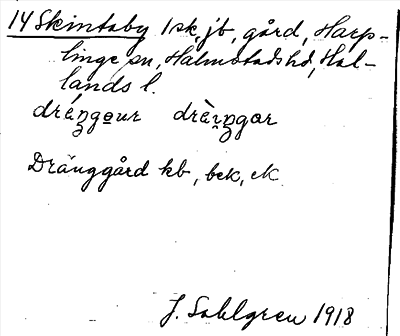 14 Skintaby 1 sk, jb, gård, Harp-
linge sn, Halmstads hd, Hal-
lands l.
drę́ngo̱ur drèi̯ngo̱r
Dränggård kb, bek, ek
J. Sahlgren 1918